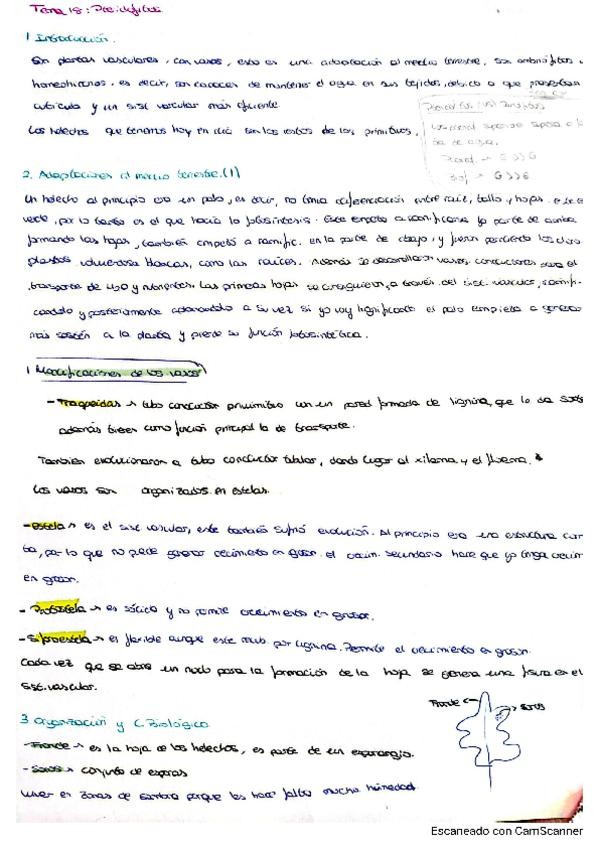 Tema 18: Pteridofitas
1 Introducción.
Son plantas vasculares, con vasos, esto es una adaptación al medio terrestre, son embriófitas,
homeohídricas, es decir, son capaces de mantener el agua en sus tejidos, debido a que presentan
cutícula y un sist vascular más eficiente.
Los helechos que tenemos hoy en día son los restos de los primitivos,
2. Adaptaciones al medio terrestre.(1)
Un helecho al principio era un palo, es decir, no tenía diferenciación entre raíz, tallo y hojas. este
verde, por lo tanto es el que hacía la fotosíntesis. Este empezó a ramificarse la parte de arriba
formando las hojas, también empezó a ramific. en la parte de abajo, y fueron perdiendo los cloro
plastos volviendose blancas, como las raíces. Además se desarrollaron vasos conductores para el
transporte de H2O y nutrientes. Las primeras hojas se consiguieron a través del sist. vascular, ramifi-
candolo y posteriormente a su vez si yo voy lignificando el palo empieza a generar
más sostén a la planta y pierde su función fotosintética.
1 Modificaciones de los vasos
- Traqueidas → tubo conductor primitivo con un pared formada de lignina, que le da sostén
además tienen como función principal la de transporte.
También evolucionaron a tubo conductor tubular, dando lugar al xilema y el floema.
Los vasos son organizados en estelas.
- estela → es el sist vascular, este también sufrió evolución. Al principio era una estructura
por lo que no puede generar crecimiento en grosor. el crecim. secundario hace que ya tenga crecim
en grosor.
- Protostela → es sólida y no permite crecimiento en grosor.
- Sifonostela → es flexible aunque este por lignina. Permite el crecimiento en grosor.
Cada vez que se abre un nodo para la formación de la hoja se genera una fisura en el
sist. vascular.
3 Organización y C. Biológico
- Fronde → es la hoja de los helechos, es parte de un esporangio.
- Soros → conjunto de esporas
viven en zonas de sombra porque les hace falta mucha humedad
Fronde
soros
Escaneado con CamScanner